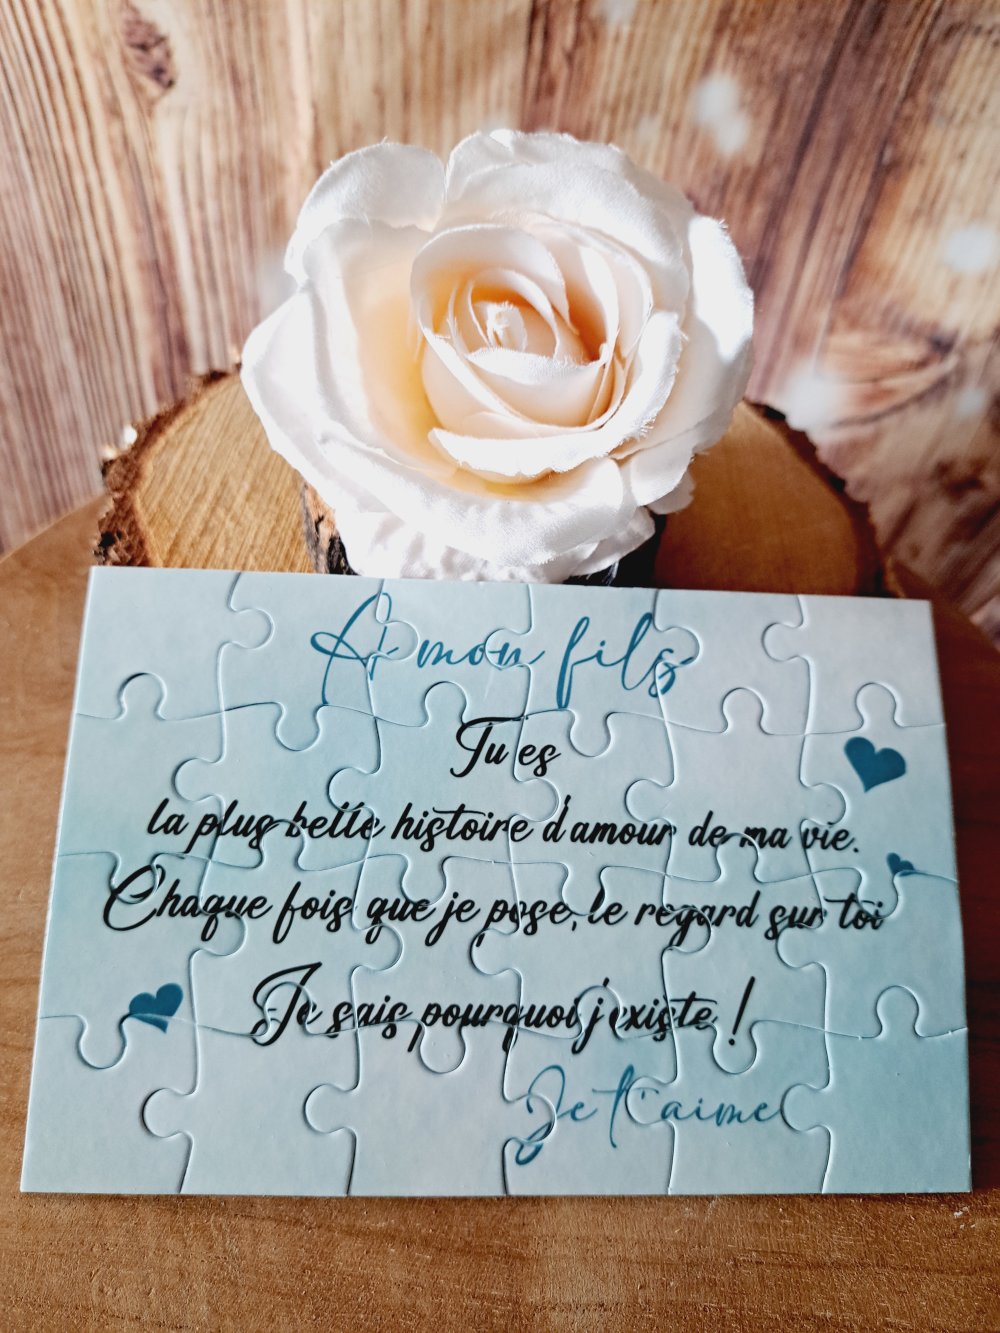 A mon fils
Tu es
la plus belle histoire d'amour de ma vie.
Chaque fois que je pose, le regard sur toi
Je sais pourquoi j'existe !
Je t'aime